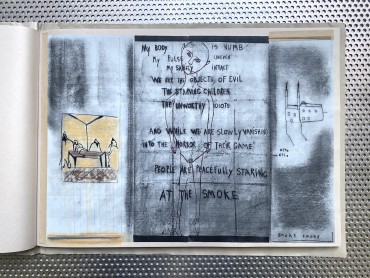 MY BODY IS NUMB
MY PULSE UNEVEN
MY SANITY INTACT
WE ARE THE OBJECTS OF EVIL
THE STARVING CHILDREN
THE UNWORTHY IDIOTS
AND WHILE WE ARE SLOWLY VANISHING
INTO THE HORROR OF THEIR GAME
PEOPLE ARE PEACEFULLY STARING
AT THE SMOKE